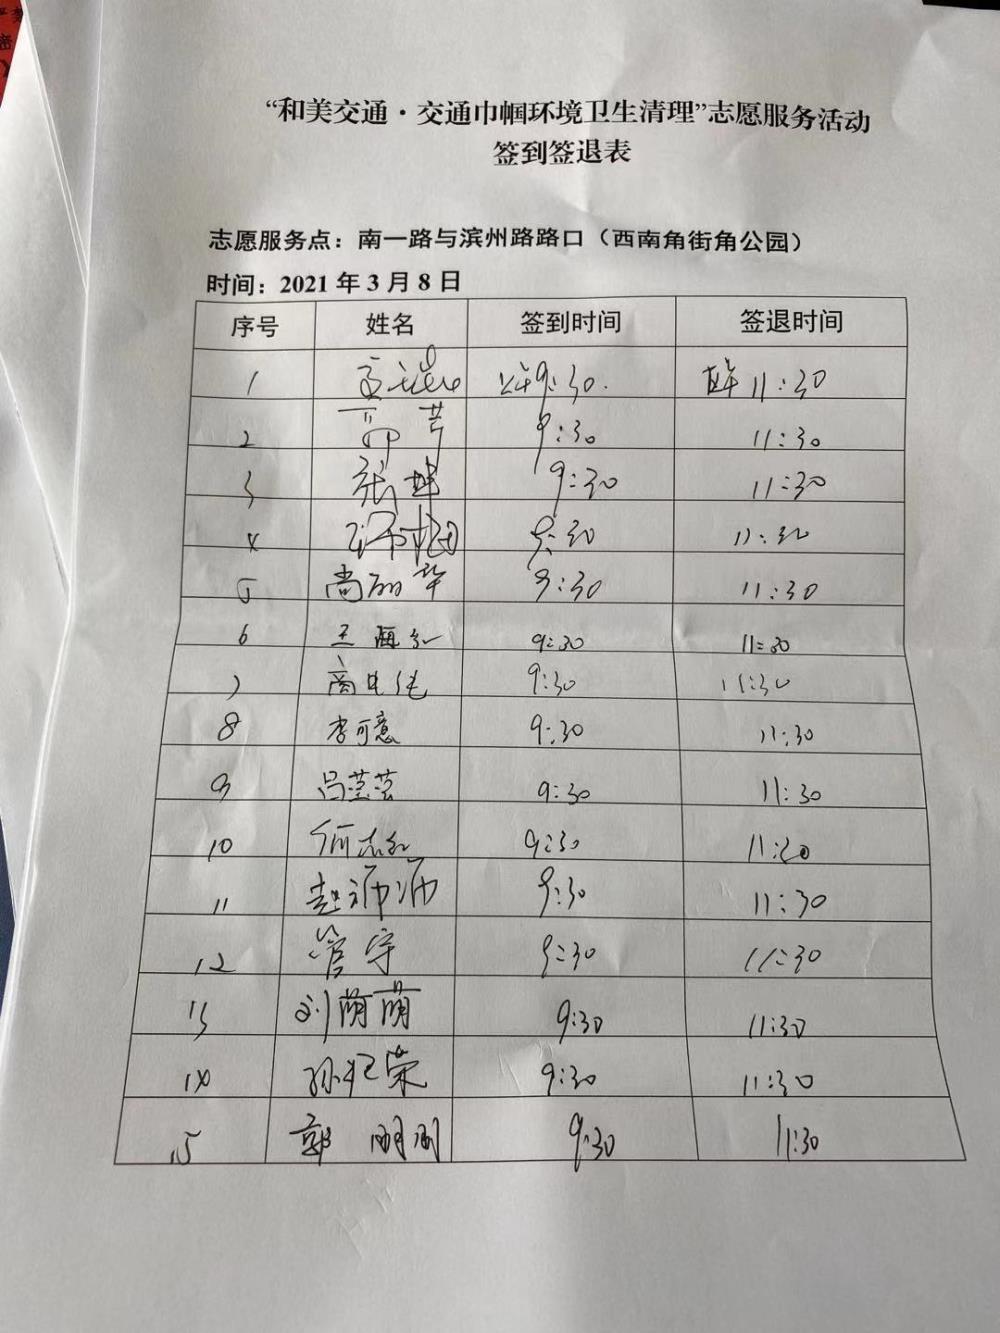 “和美交通·交通巾帼环境卫生清理”志愿服务活动
签到签退表
志愿服务点：南一路与滨州路路口（西南角街角公园）
时间：2021年3月8日
序号 姓名 签到时间 签退时间
1 9:30. 11:30
2 9:30 11:30
3 张坤 9:30 11:30
4 9:30 11:30
5 尚丽华 9:30 11:30
6 王海红 9:30 11:30
7 9:30 11:30
8 李可意 9:30 11:30
9 吕莹莹 9:30 11:30
10 何志红 9:30 11:30
11 赵沛沛 9:30 11:30
12 管守 9:30 11:30
13 刘萌萌 9:30 11:30
14 9:30 11:30
15 郭明明 9:30 11:30